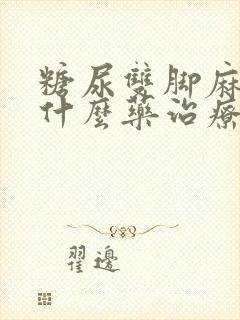 糖尿雙脚麻
什麼藥治療
翟邊